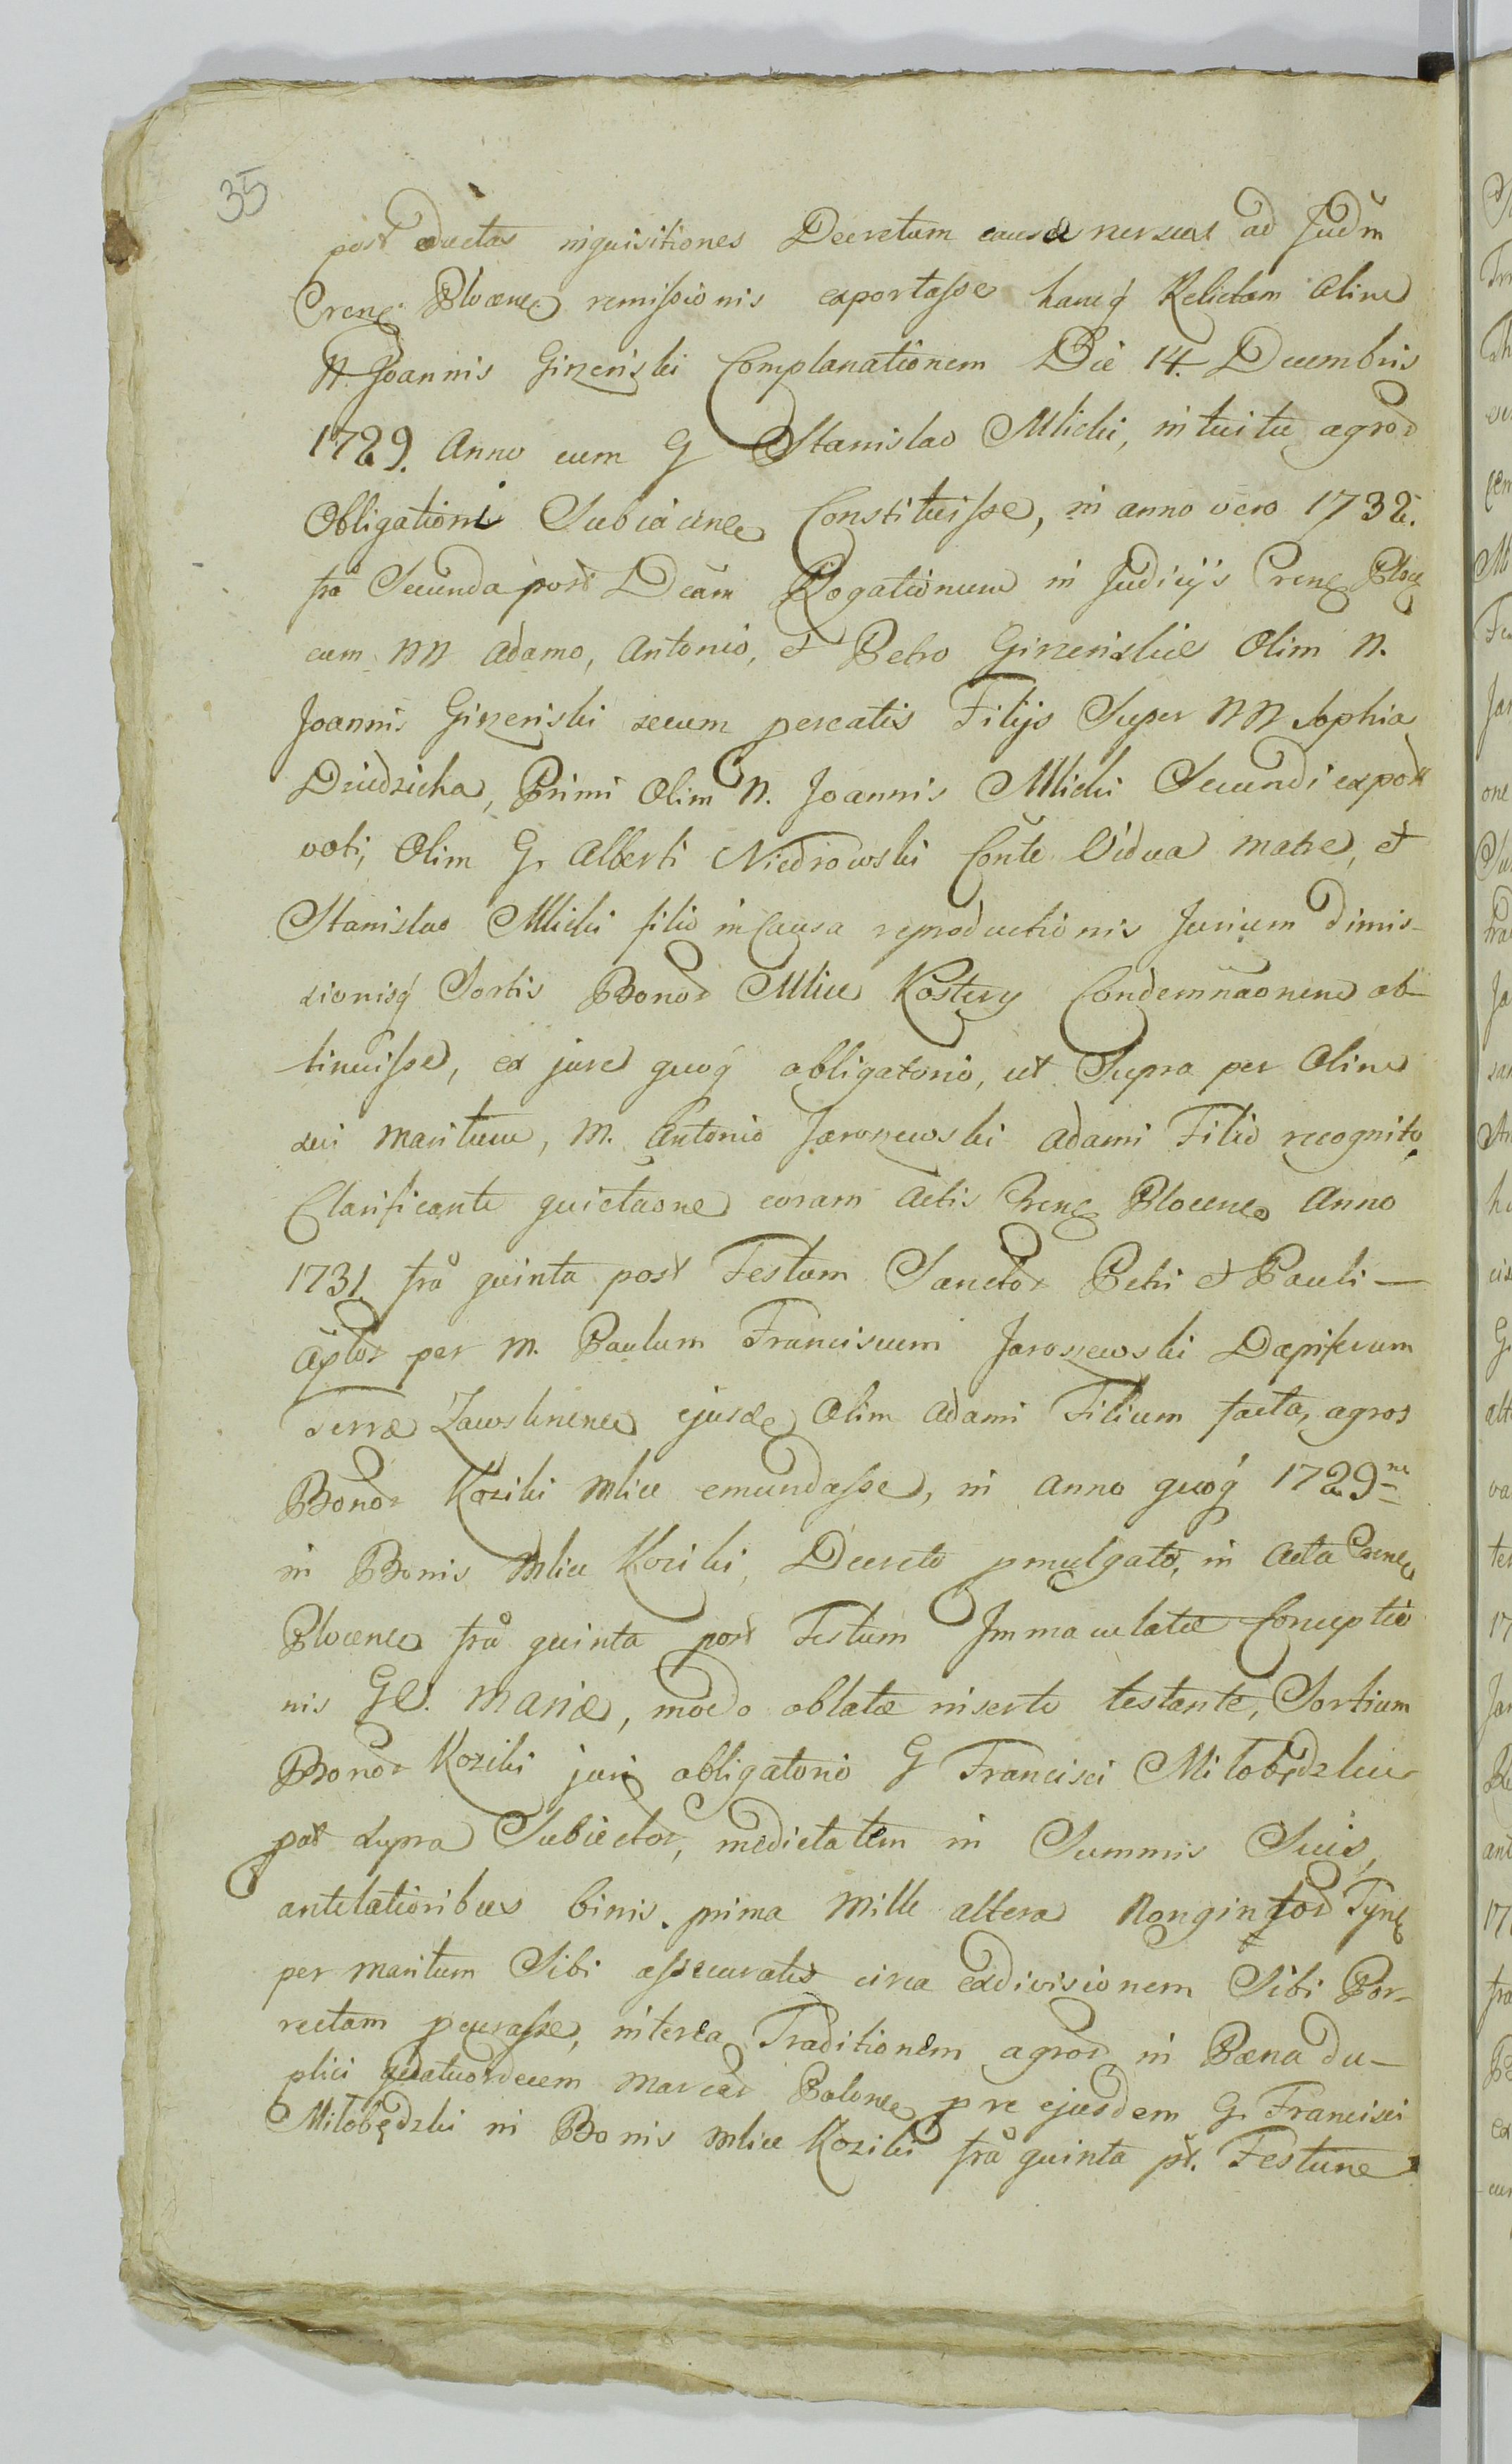 35
post eductas inquisitiones Decretum causæ rursus ad Judm̃
Crenẽ Plocenẽ remissionis exportasse hancq́ Relictam Olim
N. Joannis Giżeński Complanationem Die 14. Decembris
1729. Anno cum G Stanislao Mlicki, intuitu agror̃
Obligationi Subiacenẽ Constituisse, in anno vero 1732.
frã Secunda post Dcãm Rogationum in Judicijs Crenẽ Ploceñ
cum NN Adamo, Antonio, et Petro Giżeńskie Olim N.
Joannis Giżeński secum percatis Filijs Super NN Sophia
Dziedzicka, Primi Olim N. Joannis Mlicki Secundi expost
voti, Olim G. Alberti Niedrowski Conte Vidua matre, et
Stanislao Mlicki filio in Causa reproductionis Jurium dimis-
sionisq́ Sortis Bonor̃ Mlice Kostery Condemnãonem ob-
tinuisse, ex jure quoq́ obligatorio, ut Supra per Olim
sui maritum, M. Antonio Jaroszewski Adami Filio recognito,
Clarificante quietãone coram Actis Crenẽ Plocenẽ Anno
1731. frã quinta post Festum Sanctor̃ Petri et Pauli —
Aplor̃ per M. Paulum Franciscum Jaroszewski Dapiferum
Terræ Zawskrnenẽ ejusdẽ Olim Adami Filium facta, agros
Bonor̃ Koziki Mlice emundasse, in anno quoq́ 1729ⁿᵒ
in Bonis Mlice Koziki, Decreto pmulgato, in Acta Crenẽ
Plocenẽ frã quinta post Festum Immaculatæ Conceptio
nis Gl. Mariæ, modo oblatæ inserto testante, Sortium
Bonor̃ Koziki juri obligatorio G Francisci Miłobędzki
pat supra Subiector̃, medietatem in Summis Suis,
antelationibus binis. prima Mille altera Nongintor̃ Tynẽ
per maritum Sibi assecuratis circa exdivisionem Sibi Por-
rectam pcurasse, interea Traditionem agror̃ in Pæna du-
plici quatuordecem marcar̃ Polonẽ pre ejusdem G. Francisci
Miłobędzki in Bonis Mlice Koziki frã quinta pt̃. Festum